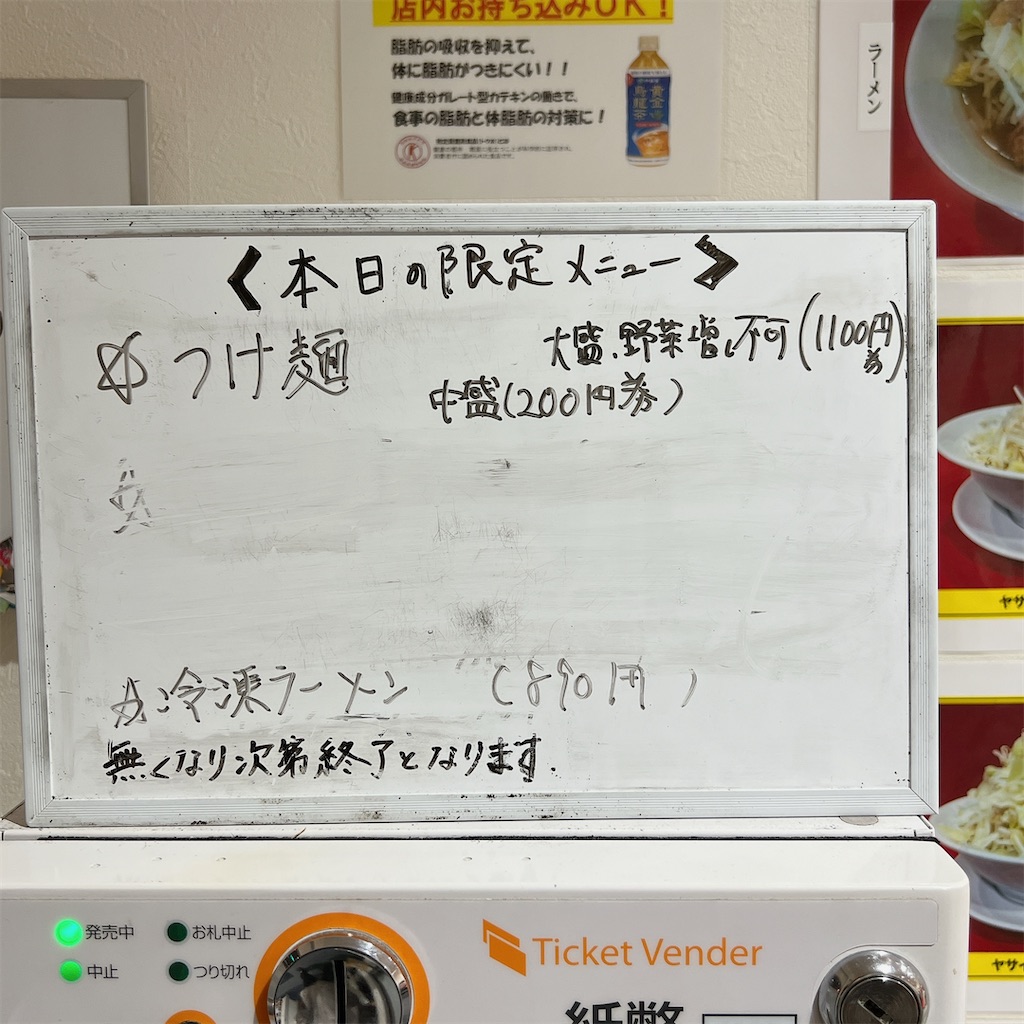 店内お持ち込みOK！
脂肪の吸収を抑えて、
体に脂肪がつきにくい！！
健康成分ガレート型カテキンの働きで、
食事の脂肪と体脂肪の対策に！
黄金
烏龍茶
ラーメン
〈本日の限定メニュー〉
つけ麺
大盛、野菜増し不可(1100円券)
中盛(200円券)
☆冷凍ラーメン (890円)
無くなり次第終了となります.
ヤサ
ヤサイ
発売中
お札中止
中止
つり切れ
Ticket Vender
紙幣